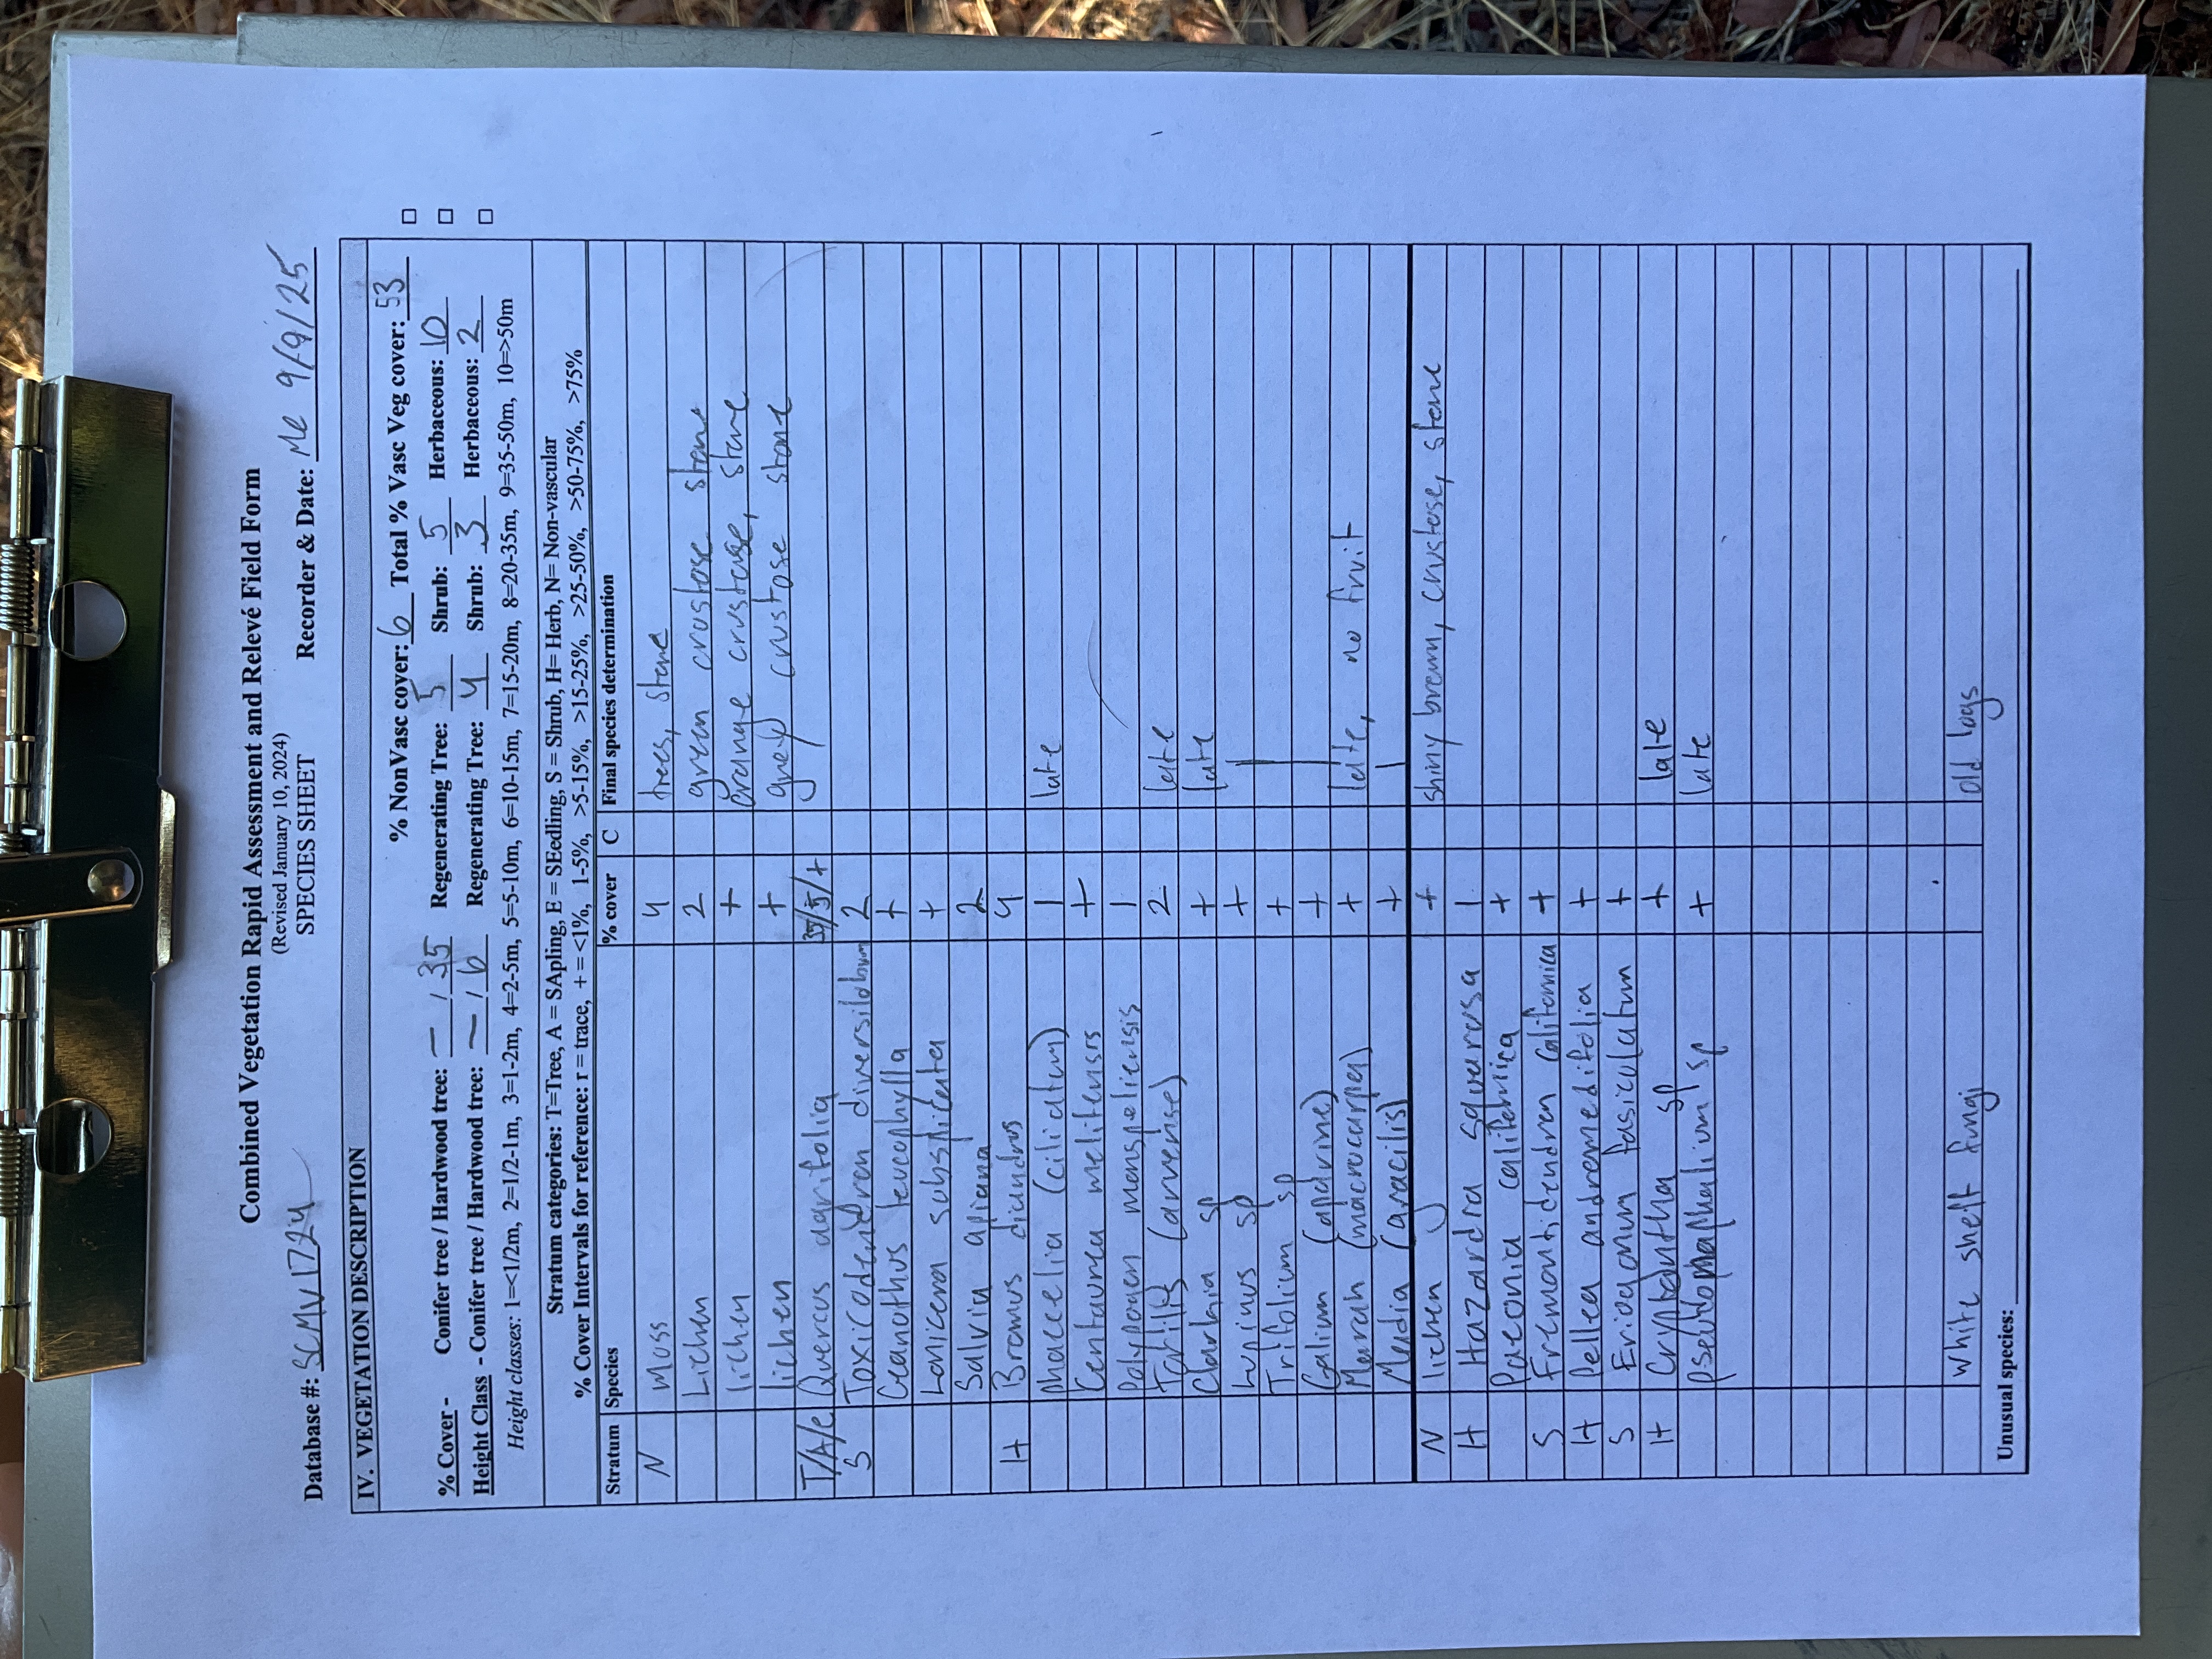 Combined Vegetation Rapid Assessment and Relevé Field Form
(Revised January 10, 2024)
SPECIES SHEET
Database #: SCMV1724 Recorder & Date: Me 9/9/25
IV. VEGETATION DESCRIPTION
% NonVasc cover: 6 Total % Vasc Veg cover: 53
% Cover - Conifer tree / Hardwood tree: — / 35 Regenerating Tree: 5 Shrub: 5 Herbaceous: 10
Height Class - Conifer tree / Hardwood tree: — / 6 Regenerating Tree: 4 Shrub: 3 Herbaceous: 2
Height classes: 1=<1/2m, 2=1/2-1m, 3=1-2m, 4=2-5m, 5=5-10m, 6=10-15m, 7=15-20m, 8=20-35m, 9=35-50m, 10=>50m
Stratum categories: T=Tree, A = SApling, E = SEedling, S = Shrub, H= Herb, N= Non-vascular
% Cover Intervals for reference: r = trace, + = <1%, 1-5%, >5-15%, >15-25%, >25-50%, >50-75%, >75%
Stratum Species % cover C Final species determination
N Moss 4 trees, stone
Lichen 2 green crustose stone
lichen + orange crustose, stone
lichen + grey crustose stone
T/A/e Quercus agrifolia 35/5/+
S Toxicodendron diversilobum 2
Ceanothus leucophylla +
Lonicera subspicata +
Salvia apiana 2
H Bromus diandrus 4
phacelia (ciliatum) 1 late
Centaurea melitensis +
Polypogen monspeliensis 1
Torilis (arvense) 2 late
Clarkia sp + late
Lupinus sp + |
Trifolium sp + |
Galium (aparine) + |
Marah (macrocarpa) + late, no fruit
Madia (gracilis) + |
N lichen + shiny brown, crustose, stone
H Hazardia squarrosa 1
Paeonia californica +
S Fremontidendron californica +
H Pellea andromedifolia +
S Eriogonum fasiculatum +
H Cryptantha sp + late
pseudognaphalium sp + late
white shelf fungi old logs
Unusual species: